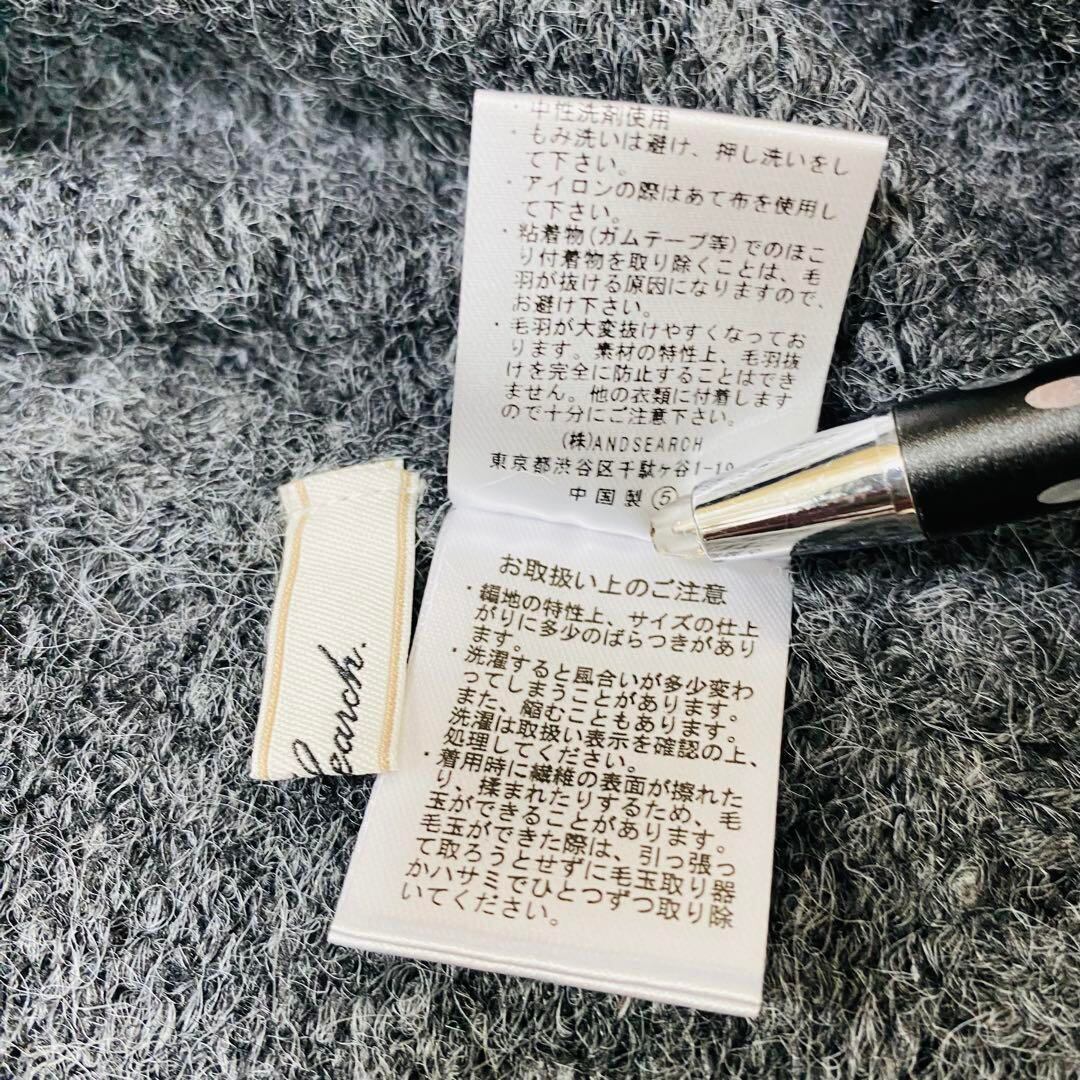 ・中性洗剤使用
・もみ洗いは避け、押し洗いをし
て下さい。
・アイロンの際はあて布を使用し
て下さい。
・粘着物(ガムテープ等)でのほこ
り付着物を取り除くことは、毛
羽が抜ける原因になりますので、
お避け下さい。
・毛羽が大変抜けやすくなってお
ります。素材の特性上、毛羽抜
けを完全に防止することはでき
ません。他の衣類に付着します
ので十分にご注意下さい。
(株)ANDSEARCH
東京都渋谷区千駄ヶ谷1-19
中国製⑤
お取扱い上のご注意
・編地の特性上、サイズの仕上
がりに多少のばらつきがあり
ます。
・洗濯すると風合いが多少変わ
ってしまうことがあります。
また、縮むこともあります。
洗濯は取扱い表示を確認の上、
処理してください。
・着用時に繊維の表面が擦れた
り、揉まれたりするため、毛
玉ができることがあります。
毛玉ができた際は、引っ張っ
て取ろうとせずに毛玉取り器
かハサミでひとつずつ取り除
いてください。
Search.